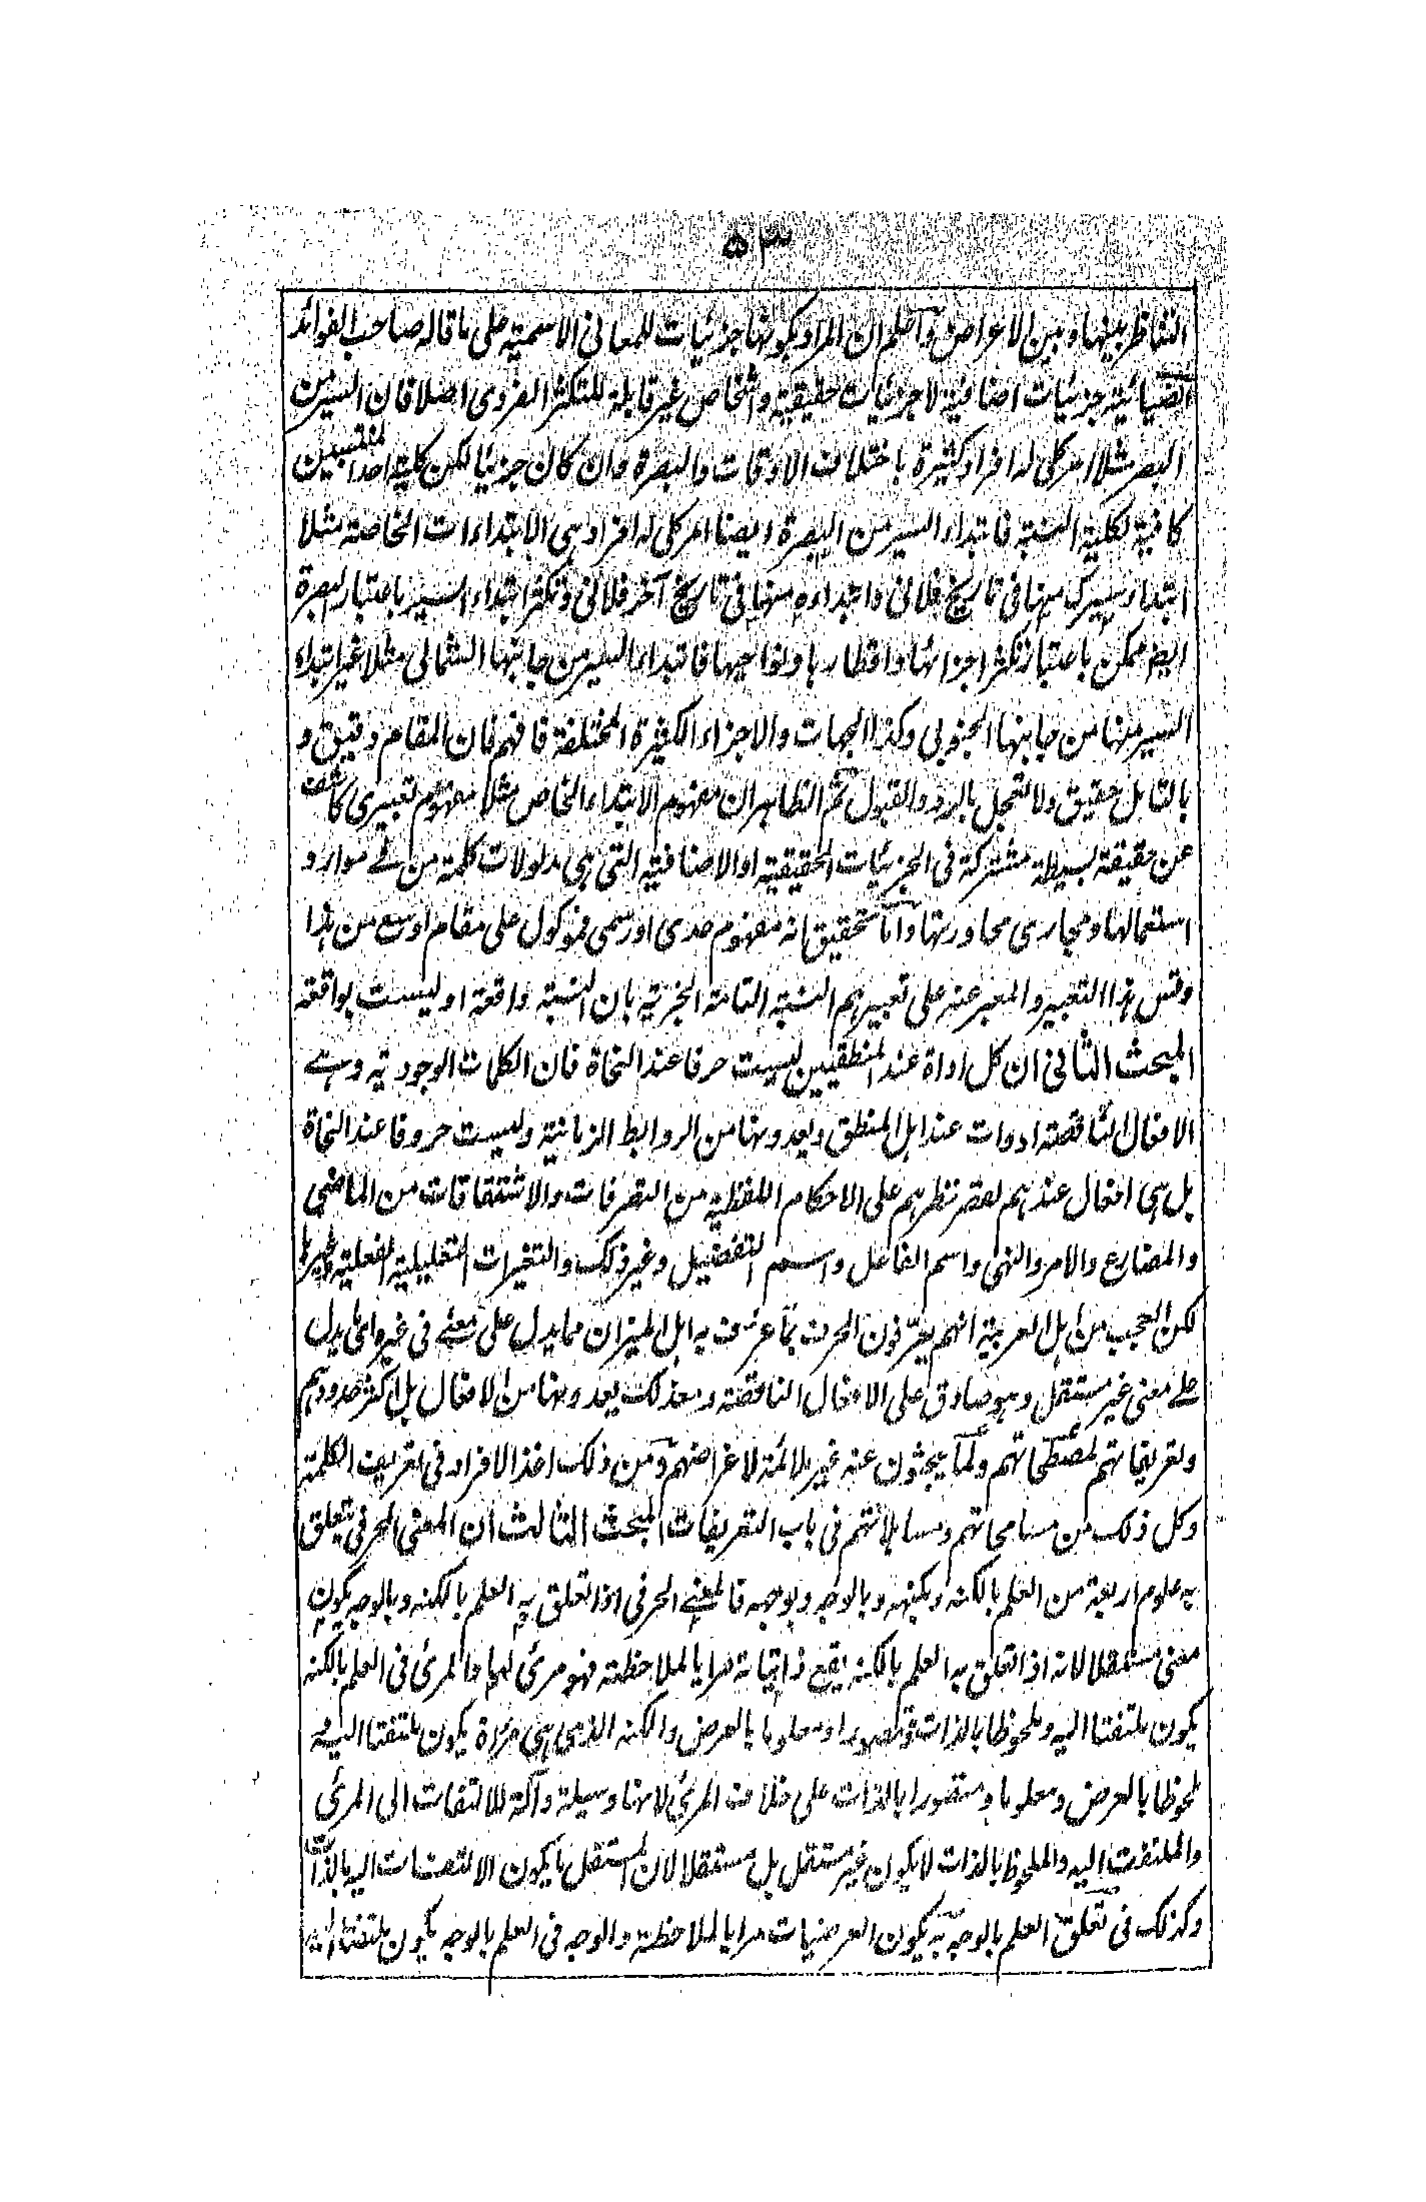 ٥٣
التناظر بينها وبين الاعراض واعلم ان المراد بكونها جزئيات للمعانى الاسمية على ما قاله صاحب الفوائد
الضيائية جزئيات اضافية لا جزئيات حقيقية واشخاص غير قابلة للتكثر الفردى اصلا فان السير من
البصرة مثلا امر كلى له افراد كثيرة باختلاف الاوقات والبصرة وان كان جزئيا لكن كلية احد المنتسبين
كافية لكلية النسبة فابتداء السير من البصرة ايضا امر كلى له افراد هى الابتداءات الخاصة مثلا
ابتداء سيرك منها فى تاريخ فلانى وابتداءه منها فى تاريخ آخر فلانى وتكثر ابتداء السير باعتبار البصرة
ايضا ممكن باعتبار تكثر اجزائها واقطارها ونواحيها فابتداء السير من جانبها الشمالى مثلا غير ابتداء
السير منها من جانبها الجنوبى وكذا الجهات والاجزاء الكثيرة المختلفة فافهم فان المقام دقيق و
بالتامل حقيق ولا تعجل بالرد والقبول ثم الظاهر ان مفهوم الابتداء الخاص مثلا مفهوم تعبيرى كاشف
عن حقيقة بسيطة مشتركة فى الجزئيات الحقيقية او الاضافية التى هى مدلولات كلمة من فى موارد
استعمالها ومجارى محاورتها واما تحقيق انه مفهوم حدى او رسمى فموكول على مقام اوسع من هذا
وقس هذا التعبير والمعبر عنه على تعبيرهم النسبة التامة الخبرية بان النسبة واقعة او ليست بواقعة
المبحث الثانى ان كل اداة عند المنطقيين ليست حرفا عند النحاة فان الكلمات الوجودية وهى
الافعال الناقصة ادوات عند اهل المنطق ويعدونها من الروابط الزمانية وليست حروفا عند النحاة
بل هى افعال عندهم لقصر نظرهم على الاحكام اللفظية من التصرفات والاشتقاقات من الماضى
والمضارع والامر والنهى واسم الفاعل واسم التفضيل وغير ذلك والتغيرات التعليلية الفعلية وغيرها
لكن العجب من اهل العربية انهم يعرفون الحرف بما عرف به اهل الميزان مما يدل على معنى فى غيره اى يدل
على معنى غير مستقل وهو صادق على الافعال الناقصة ومع ذلك يعدونها من الافعال بل اكثر حدودهم
وتعريفاتهم لمصطلحاتهم ولما يبحثون عنه غير ملائمة لاغراضهم ومن ذلك اخذ الافراد فى تعريف الكلمة
وكل ذلك من مسامحاتهم ومساهلاتهم فى باب التعريفات المبحث الثالث ان المعنى الحرفى يتعلق
به علوم اربعة من العلم بالكنه وبكنهه وبالوجه وبوجهه فالمعنى الحرفى اذا تعلق به العلم بالكنه وبالوجه يكون
معنى مستقلا لانه اذا تعلق به العلم بالكنه يقع ذاتياته مرايا لملاحظته فهو مرئى لها والمرئى فى العلم بالكنه
يكون ملتفتا اليه وملحوظا بالذات ومتصورا ومعلوما بالعرض والكنه الذى هى مرآة يكون ملتفتا اليه
ملحوظا بالعرض ومعلوما ومتصورا بالذات على خلاف المرئى لانها وسيلة وآلة للالتفات الى المرئى
والملتفت اليه والملحوظ بالذات لا يكون غير مستقل بل مستقلا لان المستقل ما يكون الالتفات اليه بالذات
وكذلك فى تعلق العلم بالوجه به يكون العرضيات مرايا لملاحظة والوجه فى العلم بالوجه يكون ملتفتا اليه